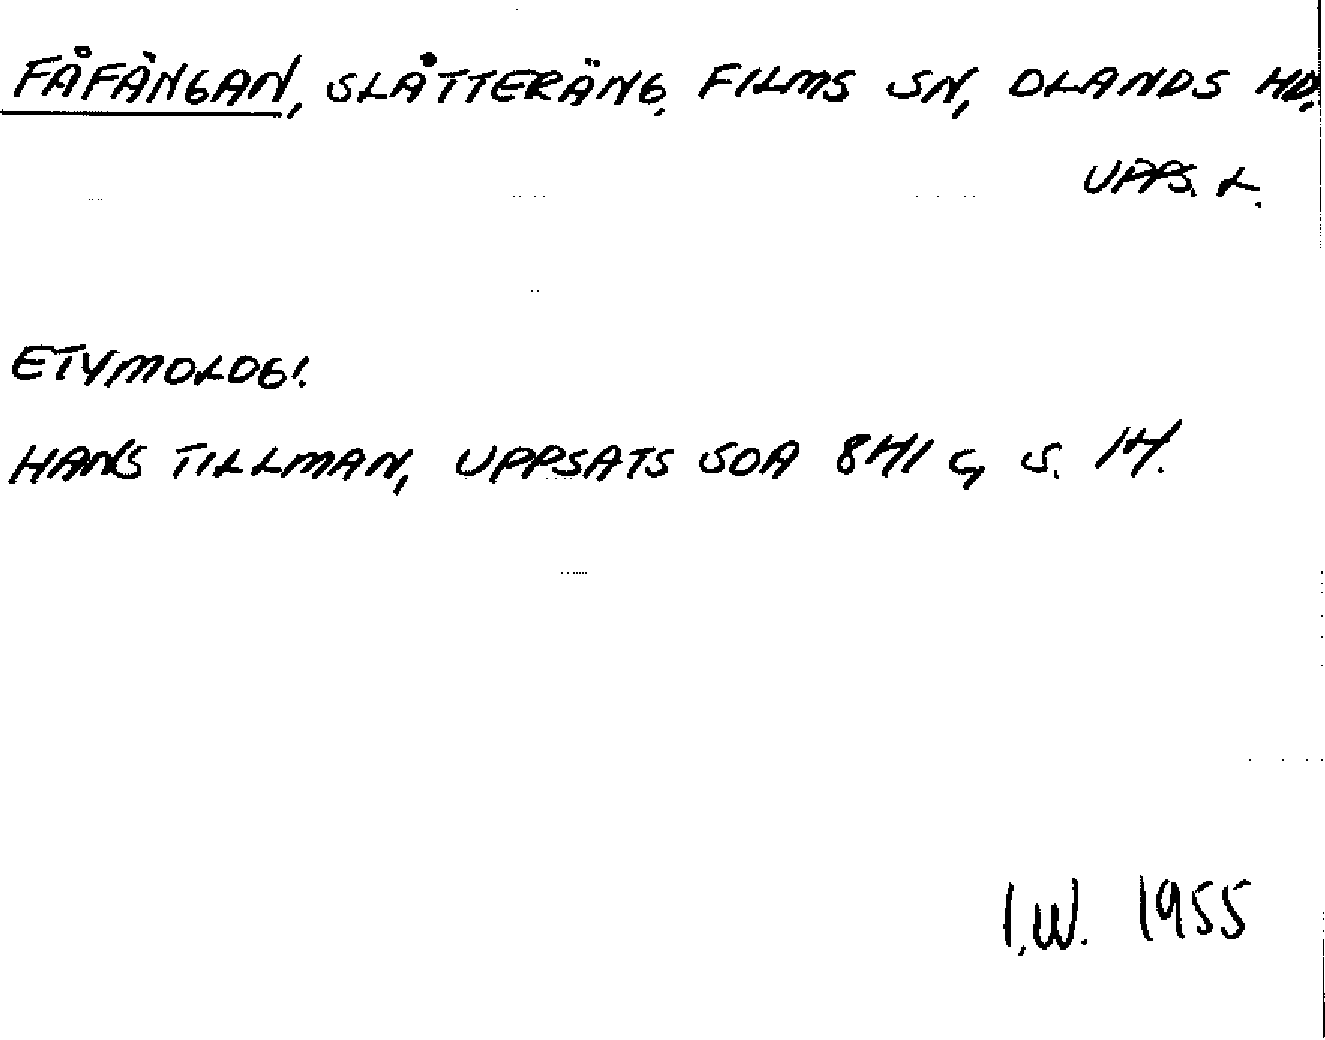 FÅFÄNGAN, SLÅTTERÄNG, FILMS SN, OLANDS HD,
UPPS. L.
ETYMOLOGI.
HANS TILLMAN, UPPSATS SOA 841 C, S. 14.
I.W. 1955